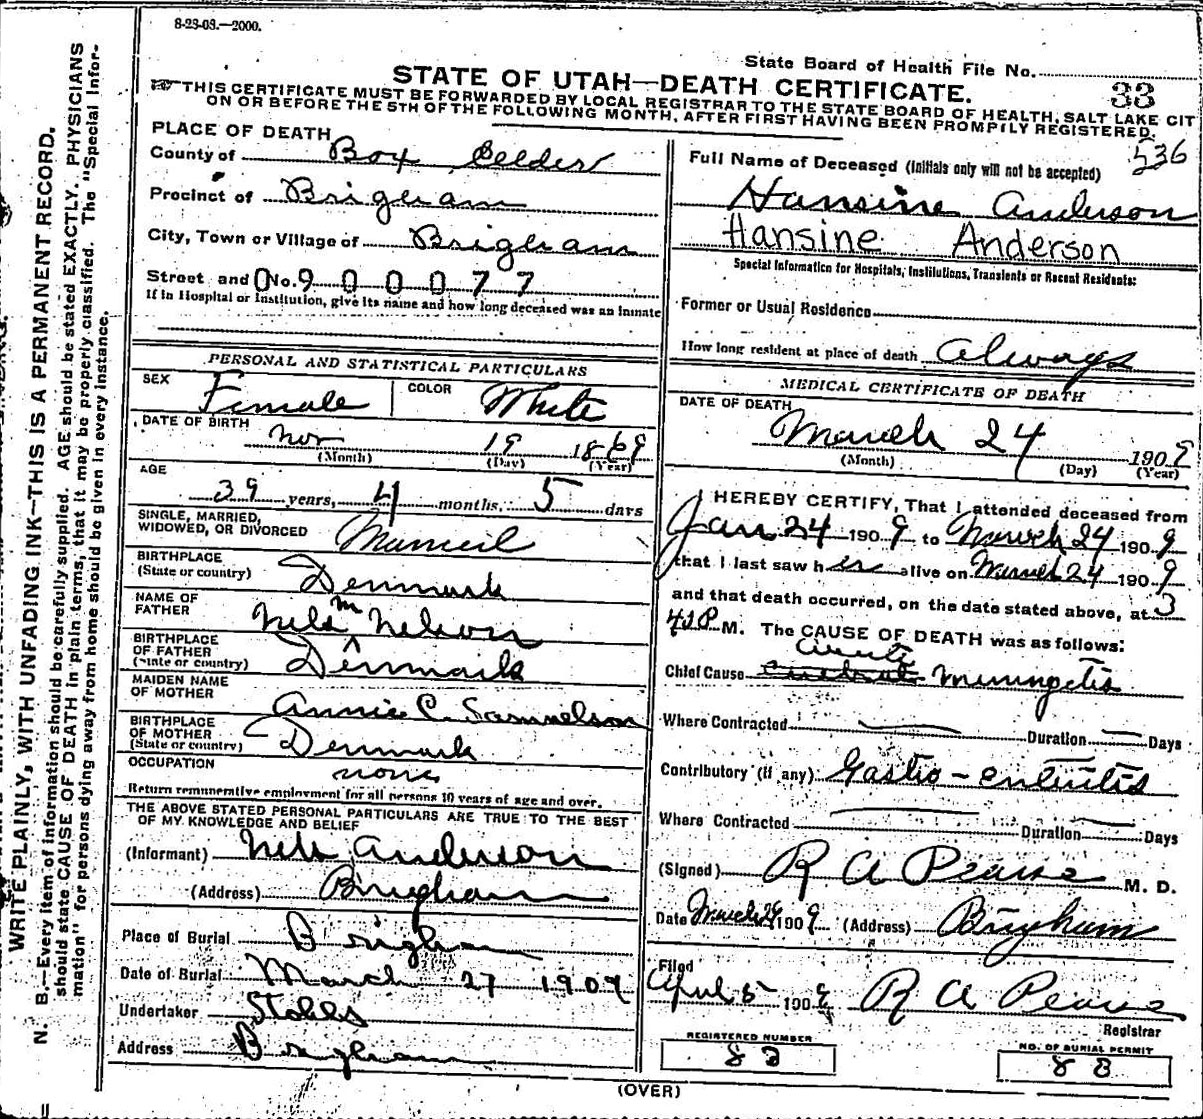 8-23-08.—2000.
State Board of Health File No.
STATE OF UTAH—DEATH CERTIFICATE.
33
THIS CERTIFICATE MUST BE FORWARDED BY LOCAL REGISTRAR TO THE STATE BOARD OF HEALTH, SALT LAKE CIT
ON OR BEFORE THE 5TH OF THE FOLLOWING MONTH, AFTER FIRST HAVING BEEN PROMPTLY REGISTERED.
536
WRITE PLAINLY, WITH UNFADING INK—THIS IS A PERMANENT RECORD.
N. B.—Every item of information should be carefully supplied. AGE should be stated EXACTLY. PHYSICIANS
should state CAUSE OF DEATH in plain terms, that it may be properly classified. The "Special Infor-
mation" for persons dying away from home should be given in every instance.
PLACE OF DEATH
County of Box Elder
Precinct of Brigham
City, Town or Village of Brigham
Street and No. 0 9 0 0 0 7 7
If in Hospital or Institution, give its name and how long deceased was an inmate
PERSONAL AND STATISTICAL PARTICULARS
SEX Female COLOR White
DATE OF BIRTH Nov 19 1869
(Month) (Day) (Year)
AGE
39 years, 4 months, 5 days
SINGLE, MARRIED,
WIDOWED, OR DIVORCED Married
BIRTHPLACE
(State or country) Denmark
NAME OF
FATHER Nels M Nelson
BIRTHPLACE
OF FATHER
(State or country) Denmark
MAIDEN NAME
OF MOTHER Annie C. Samuelson
BIRTHPLACE
OF MOTHER
(State or country) Denmark
OCCUPATION none
Return remunerative employment for all persons 10 years of age and over.
THE ABOVE STATED PERSONAL PARTICULARS ARE TRUE TO THE BEST
OF MY KNOWLEDGE AND BELIEF
(Informant) Nels Anderson
(Address) Brigham
Place of Burial Brigham
Date of Burial March 27 1909
Undertaker Stohls
Address Brigham
Full Name of Deceased (Initials only will not be accepted)
Hansine Anderson
Hansine Anderson
Special Information for Hospitals, Institutions, Transients or Recent Residents:
Former or Usual Residence
How long resident at place of death Always
MEDICAL CERTIFICATE OF DEATH
DATE OF DEATH
March 24 1909
(Month) (Day) (Year)
I HEREBY CERTIFY, That I attended deceased from
Jan 24 1909 to March 24 1909
that I last saw her alive on March 24 1909
and that death occurred, on the date stated above, at 3
45 P M. The CAUSE OF DEATH was as follows:
acute
Chief Cause Meningetis
Where Contracted Duration Days
Contributory (if any) Gastro-enteritis
Where Contracted Duration Days
(Signed) R A Pearse M. D.
Date March 1909 (Address) Brigham
Filed
April 5 1909 R A Pearse
Registrar
REGISTERED NUMBER
83
NO. OF BURIAL PERMIT
83
(OVER)